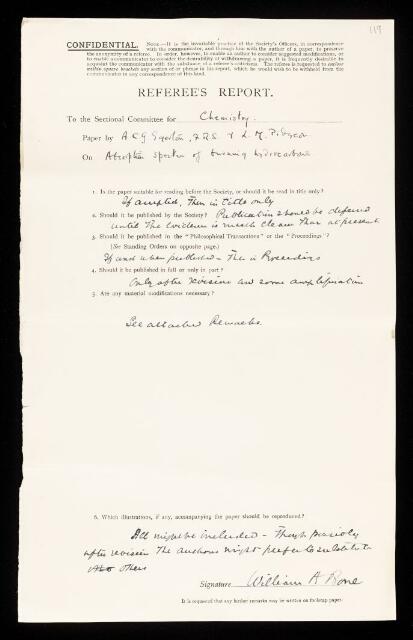 119
CONFIDENTIAL. NOTE.—It is the invariable practice of the Society's Officers, in correspondence
with the communicator, and through him with the author of a paper, to preserve
the anonymity of a referee. In order, however, to enable an author to consider suggested modifications, or
to enable a communicator to consider the desirability of withdrawing a paper, it is frequently desirable to
acquaint the communicator with the substance of a referee's criticisms. The referee is requested to
within square brackets any section of or phrase in his report, which he would wish to be withheld from the
communicator in any correspondence of this kind.
REFEREE'S REPORT.
To the Sectional Committee for Chemistry.
Paper by A C G Egerton, F.R.S. & L. M. Pidgeon
On Absorption spectra of burning hydrocarbons
1. Is the paper suitable for reading before the Society, or should it be read in title only?
If accepted, then in title only
2. Should it be published by the Society? Publication should be deferred
until the evidence is much clearer than at present
3. Should it be published in the "Philosophical Transactions" or the "Proceedings"?
(See Standing Orders on opposite page.)
If and when published - then in Proceedings
4. Should it be published in full or only in part?
Only after revision and some amplification
5. Are any material modifications necessary?
See attached Remarks.
6. Which illustrations, if any, accompanying the paper should be reproduced?
All might be included - though possibly
after revision the authors might prefer to substitute
others
Signature William A Bone
It is requested that any further remarks may be written on foolscap paper.